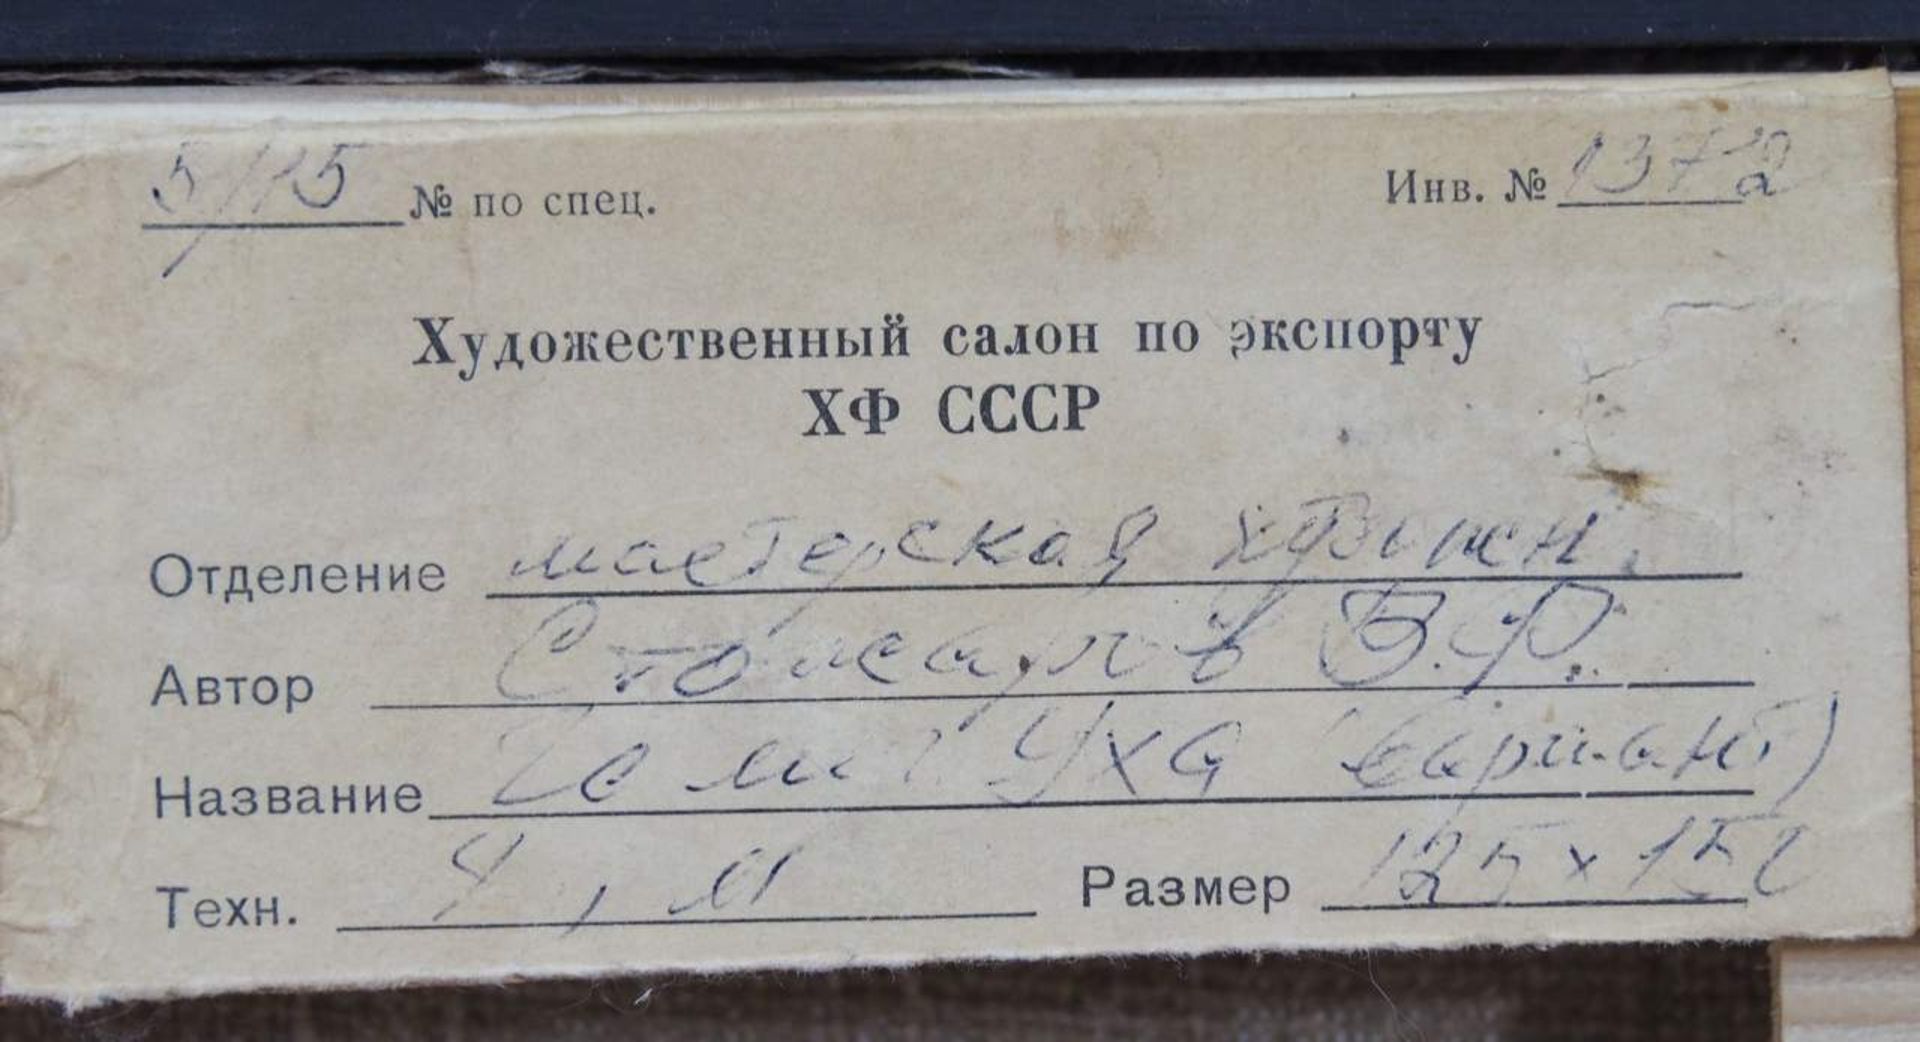 5/115 № по спец. Инв. № 1372
Художественный салон по экспорту
ХФ СССР
Отделение мастерская
Автор Стожаров В.Ф.
Название Уха (вариант)
Техн. , м Размер 125 x 150